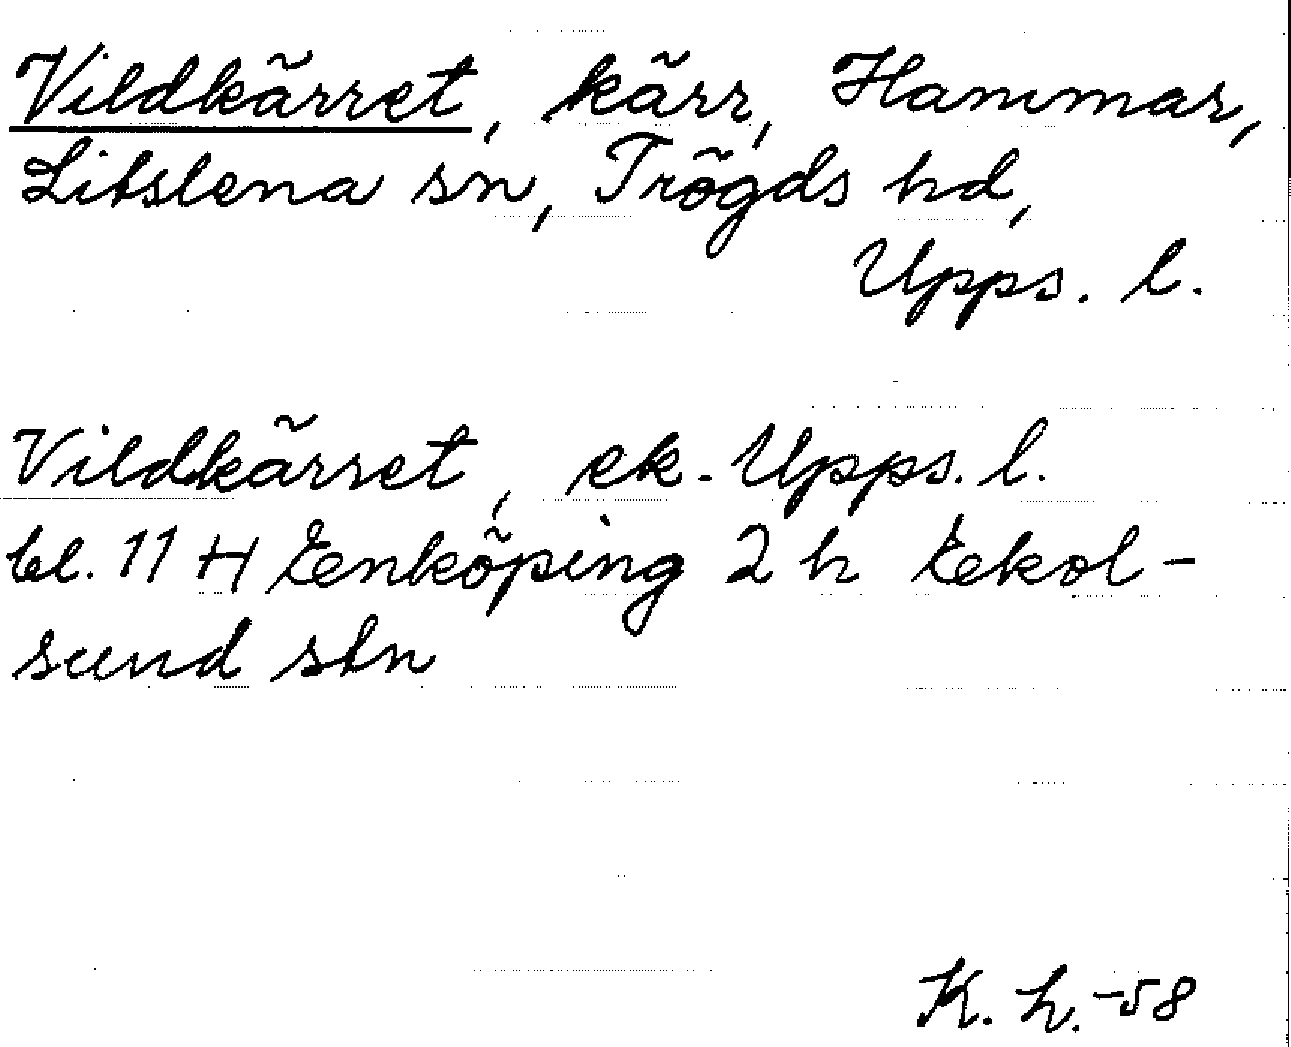 Vildkärret, kärr, Hammar,
Litslena sn, Trögds hd,
Upps. l.
Vildkärret, ek. Upps. l.
bl. 11 H Enköping 2 h Ekol-
sund stn
K. h. -58